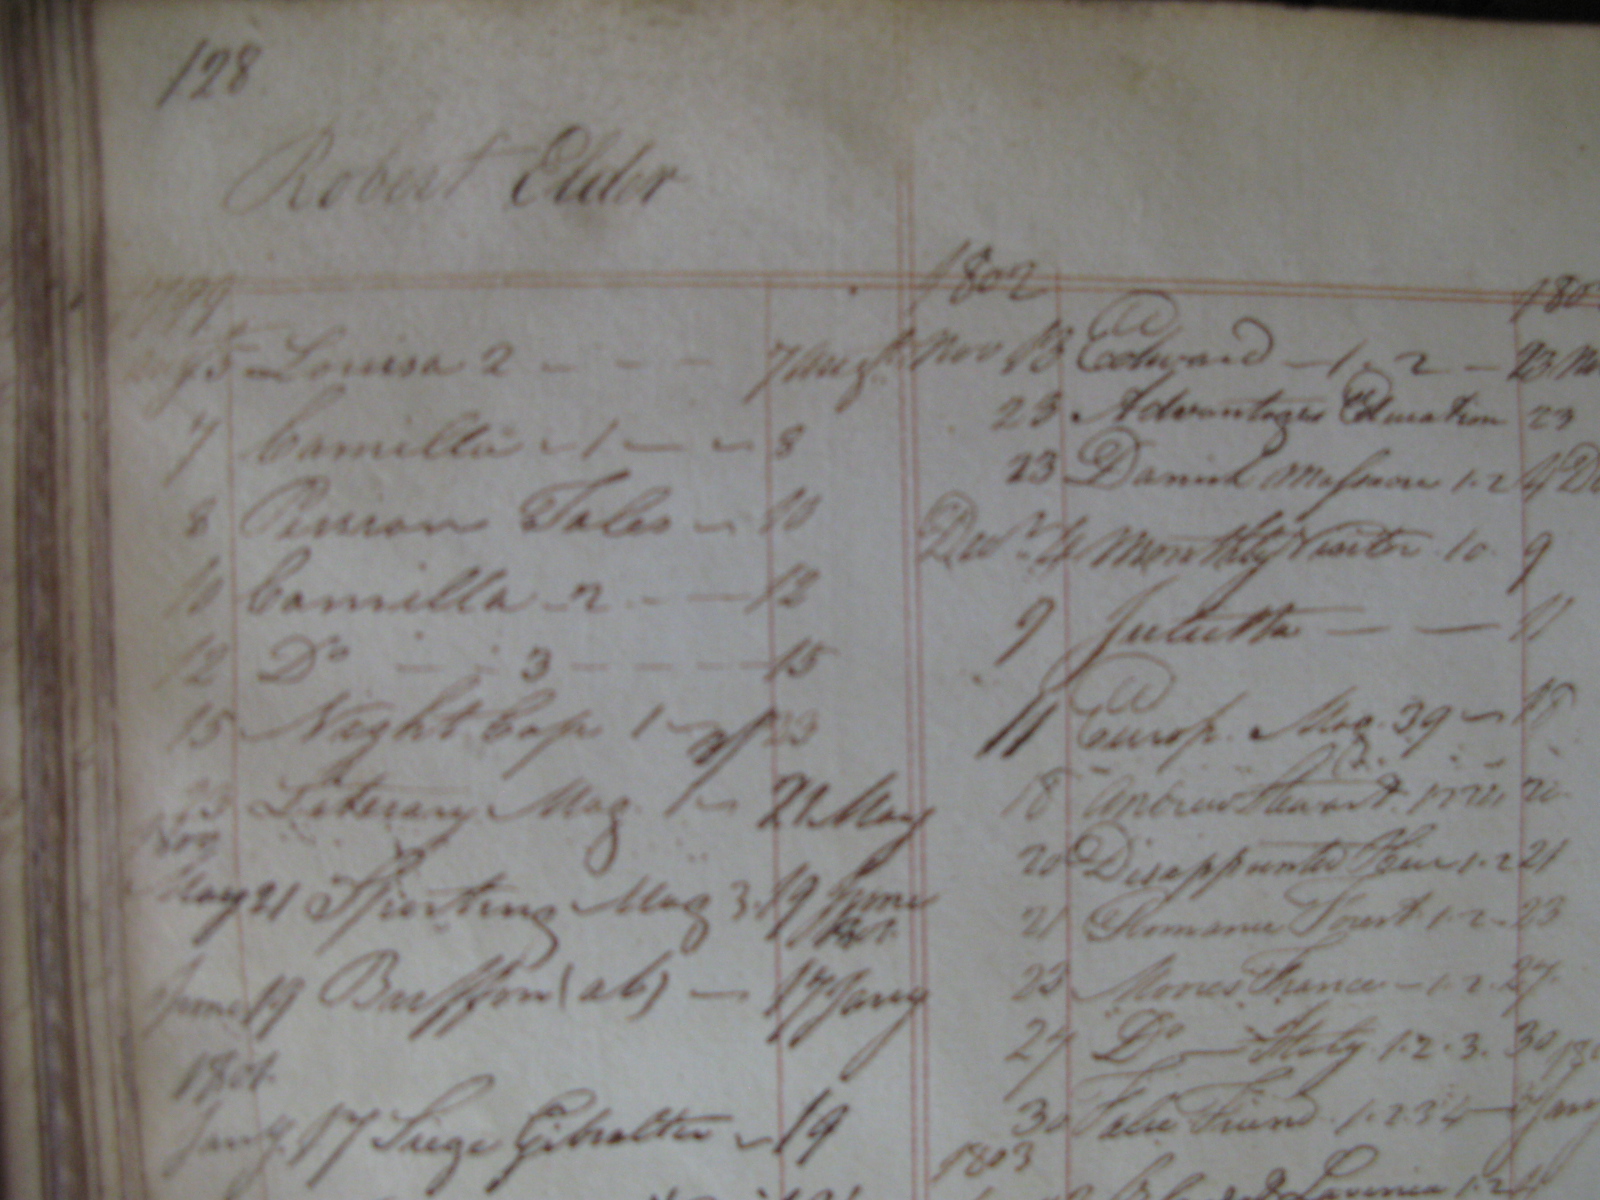 128
Robert Elder
1799
5 Louisa 2 - - - 7 Augt
7 Camilla - 1 - - 8
8 Persian Tales - 10
10 Camilla - 2 - - 12
12 Do - - 3 - - - - 15
15 Night Cap 1 - 23
23 Literary Mag. 1 - 21 May
1800
May 21 Sporting Mag 3. 19 June
June 19 Buffon (ab) - 17 Jany
1801
Jany. 17 Siege Gibralter - 19
1802
Nov 13 Edward - 1 - 2 - 23 No
23 Advantages Education 23
23 Daniel 1-2 4 De
Decr 4 Monthly Visitor 10 9
9 Julietta - - - 11
11 Europ. Mag. 39 - 18
18 Andrew Stewart 20
20 Disappointed Heir 1-2 21
21 Romance Forest 1-2 - 23
23 Moores France - 1-2 - 27
27 Do - Italy 1-2-3. 30
30 False Friend 1-2 3 4 - Jan
1803
Lavinia 1-2